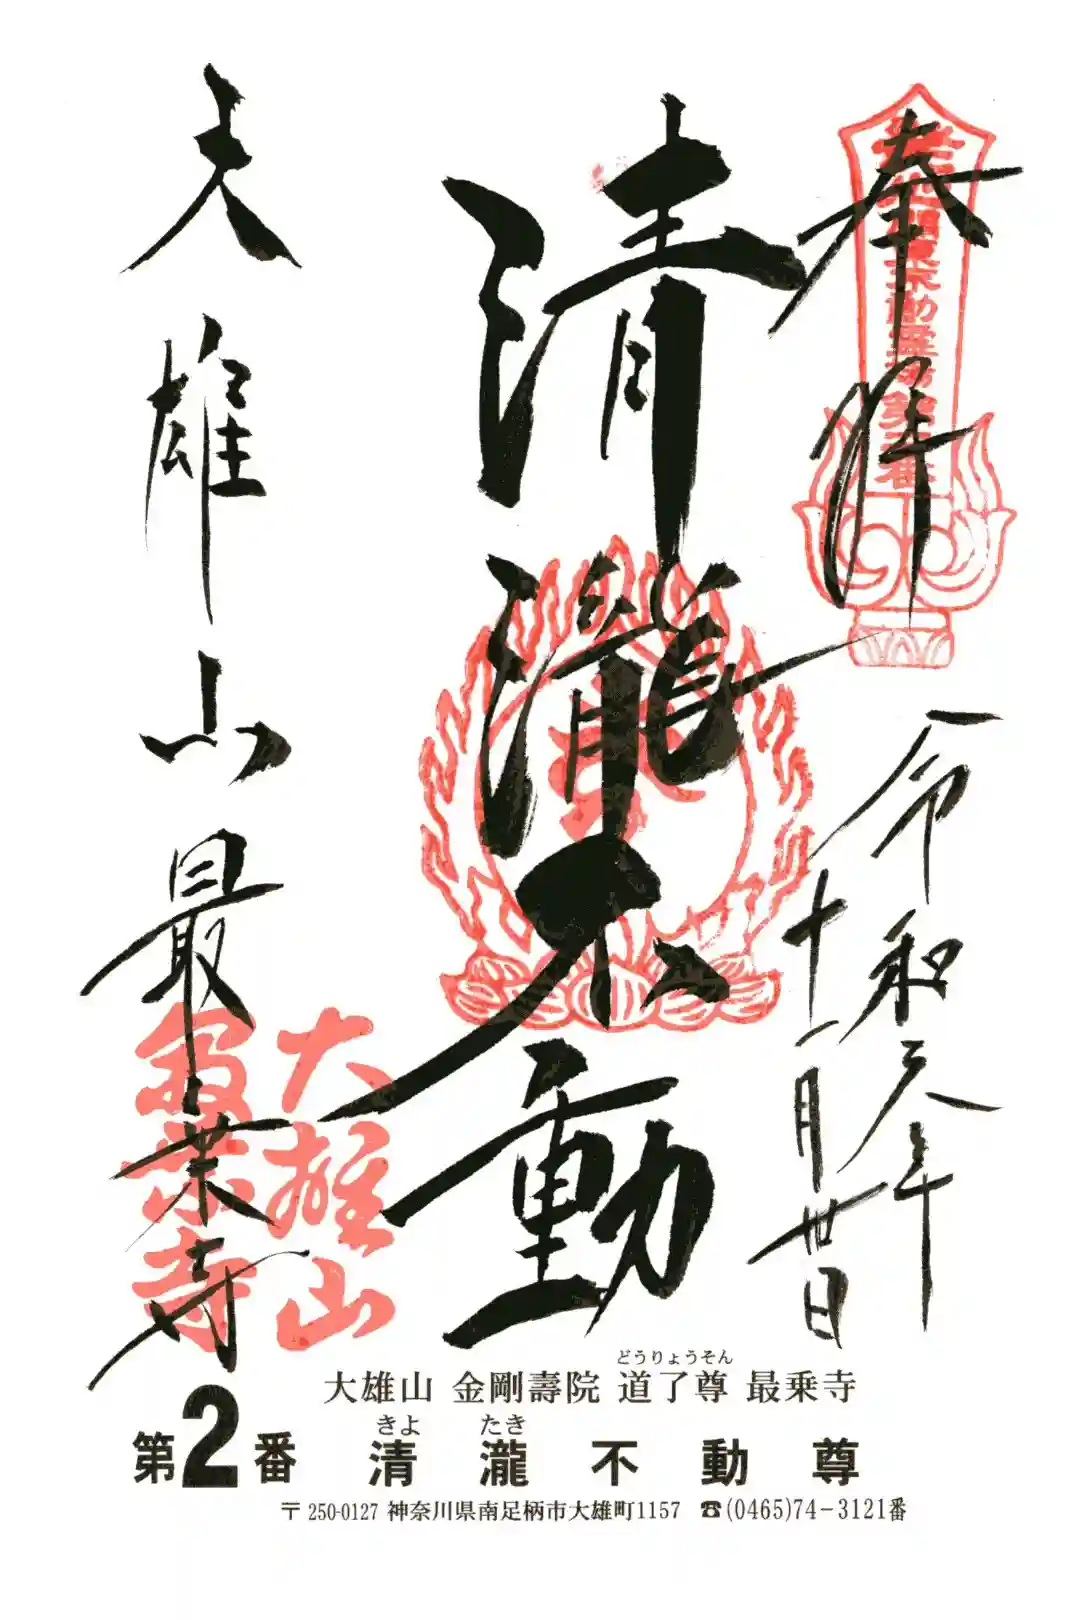 奉拝
令和年
十一月
日
清瀧不動
大雄山最乗寺
不動霊場第二番
大雄山
最乗寺
どうりょうそん
大雄山 金剛壽院 道了尊 最乗寺
きよ たき
第2番 清瀧不動尊
〒250-0127 神奈川県南足柄市大雄町1157 ☎(0465)74-3121番